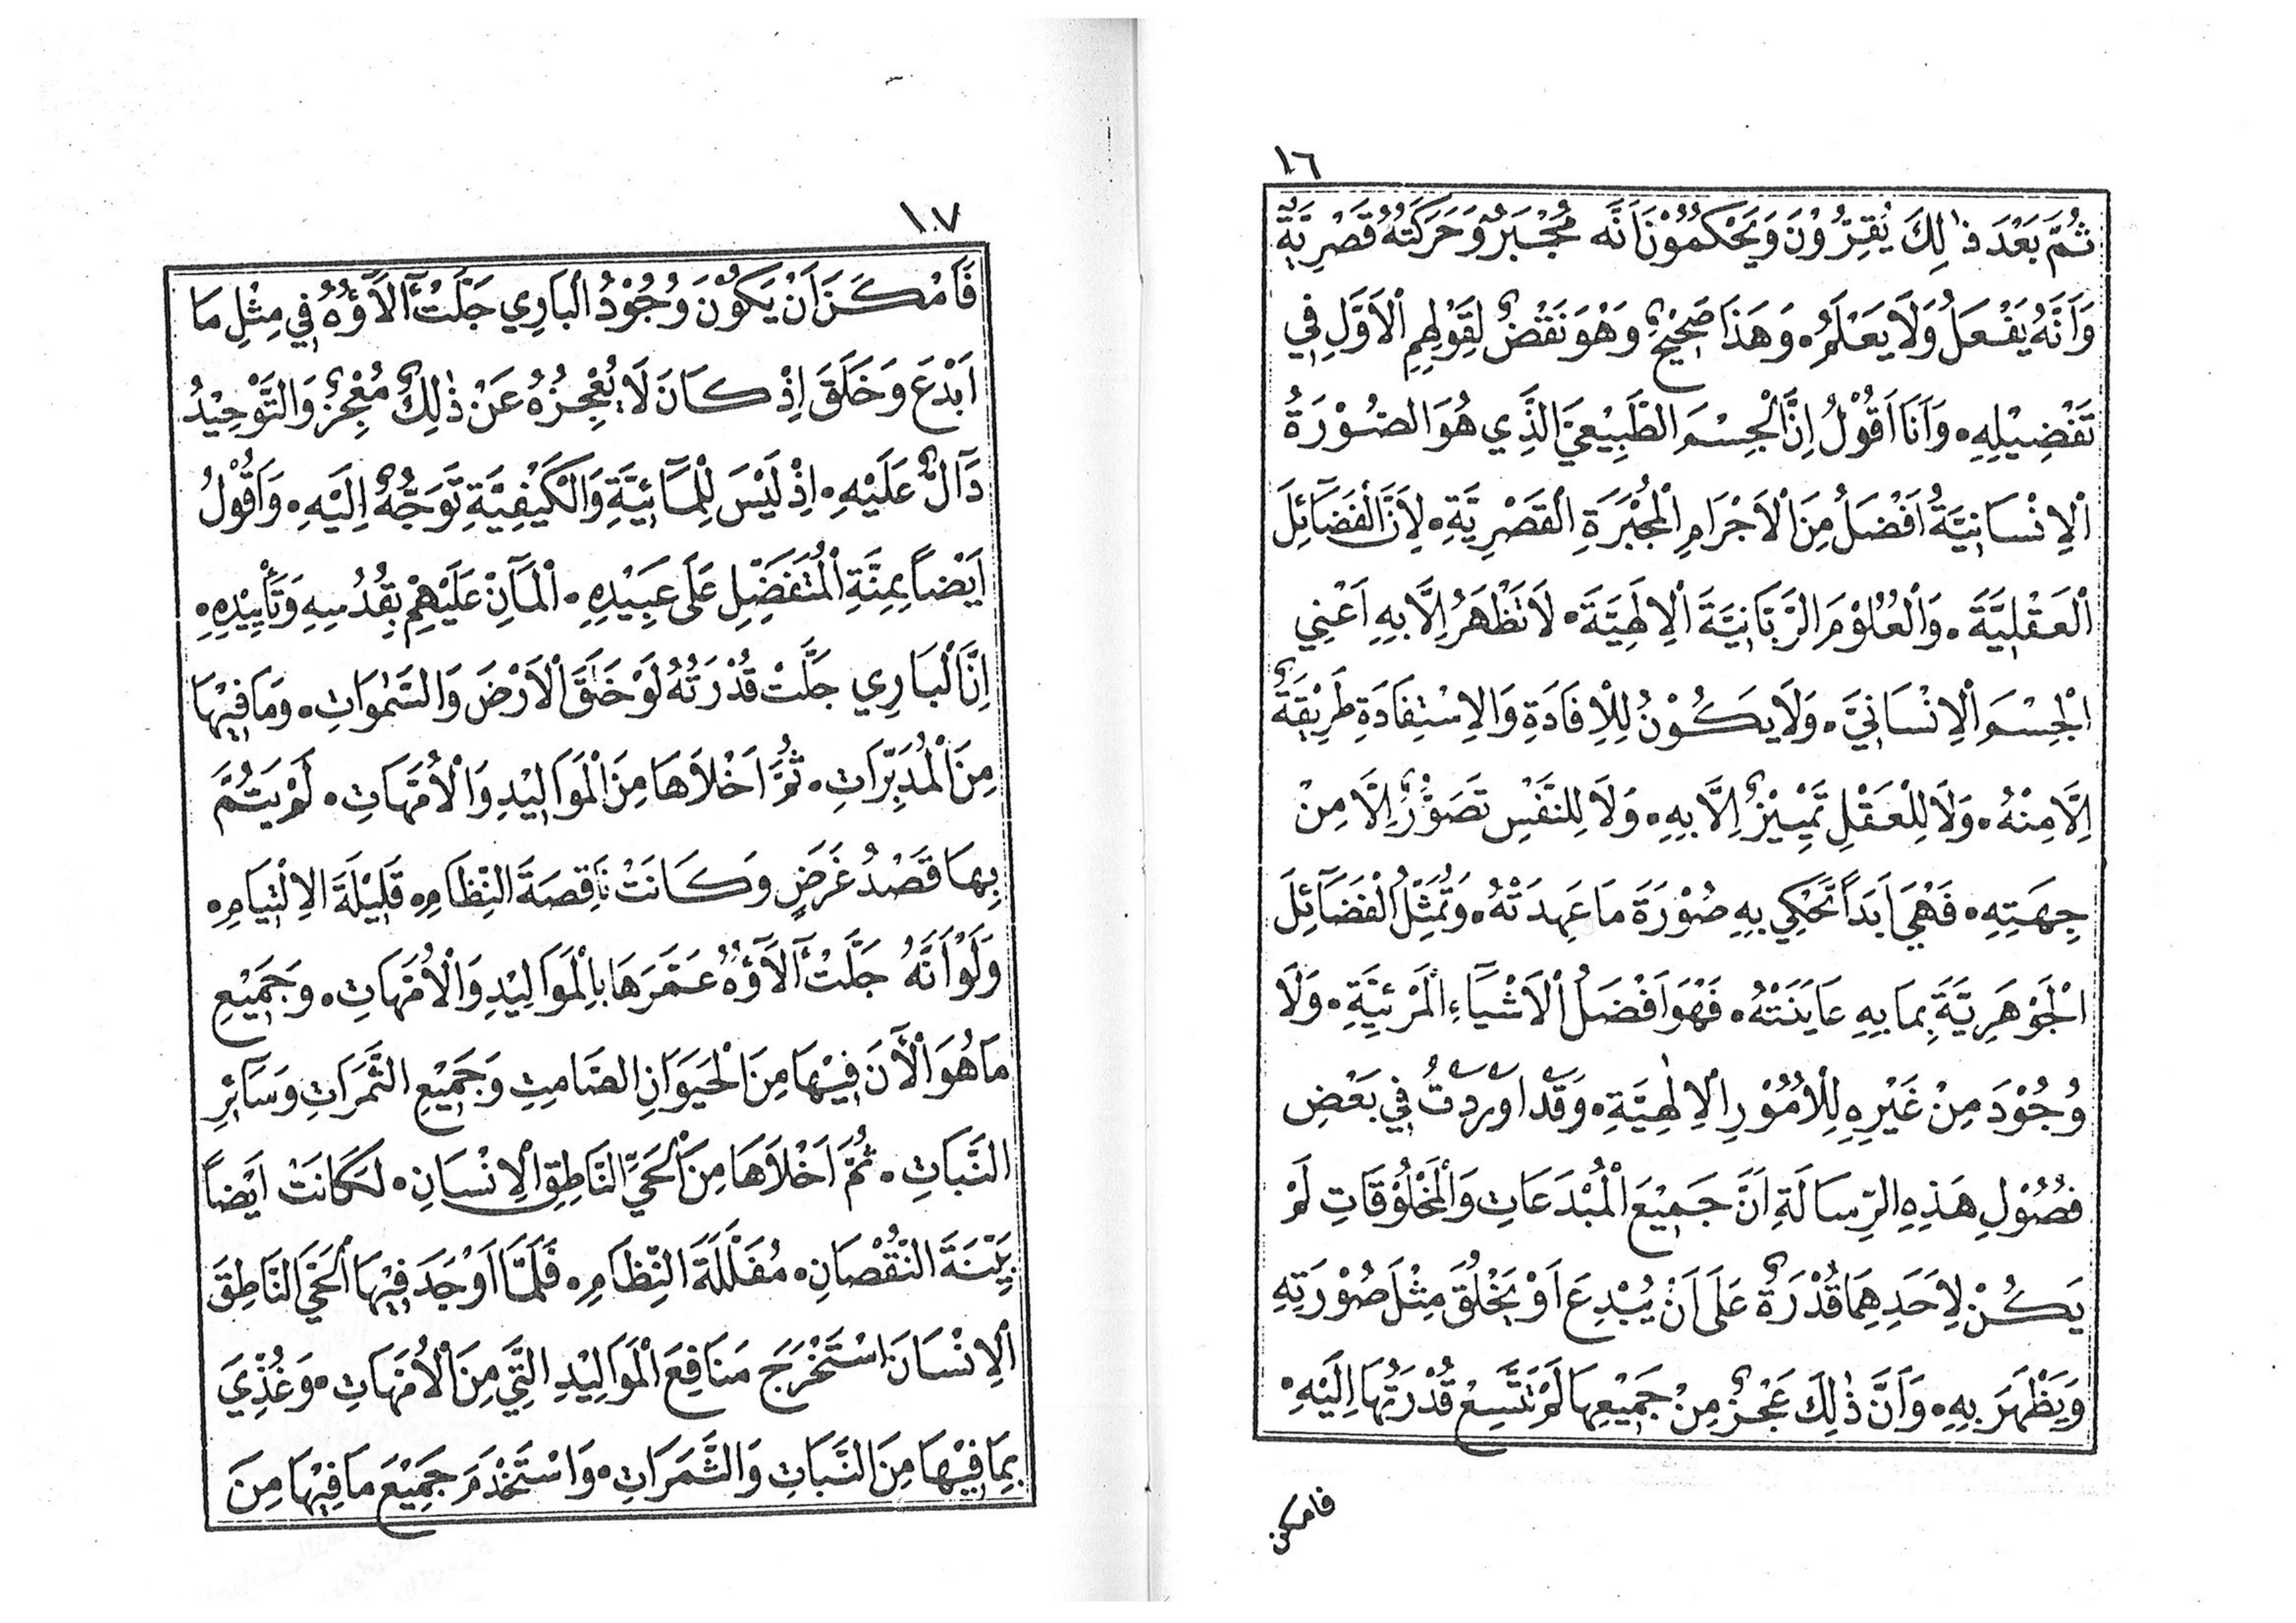 ١٦
ثُمَّ بَعْدَ ذٰلِكَ يُقِرُّوْنَ وَيَحْكُمُوْنَ اَنَّه مُجْبَرٌ وَحَرَكَتُهُ قَصْرِيَّةٌ
وَاَنَّهُ يَفْعَلُ وَلَا يَعْلَمُ۰ وَهَذَا صَحِيْحٌ وَهُوَ نَقْضٌ لِقَوْلِهِمِ الْاَوَّلِ فِي
تَفْضِيْلِهِ۰ وَاَنَا اَقُوْلُ اِنَّ الْجِسْمَ الطَّبِيْعِيَّ الَّذِي هُوَ الصُّوْرَةُ
اْلِانْسَانِيَّةُ اَفْضَلُ مِنَ الْاَجْرَامِ الْمُجْبَرَةِ الْقَصْرِيَّةِ۰ لِاَنَّ الْفَضَآئِلَ
الْعَقْلِيَّةَ۰ وَالْعُلُوْمَ الرَّبَّانِيَّةَ الْاِلٰهِيَّةَ۰ لَا تَظْهَرُ اِلَّا بِهِ اَعْنِي
الْجِسْمَ الْاِنْسَانِيَّ۰ وَلَا يَكُوْنُ لِلْاِفَادَةِ وَالْاِسْتِفَادَةِ طَرِيْقَةٌ
اِلَّا مِنْهُ۰ وَلَا لِلْعَقْلِ تَمْيِيْزٌ اِلَّا بِهِ۰ وَلَا لِلنَّفْسِ تَصَوُّرٌ اِلَّا مِنْ
جِهَتِهِ۰ فَهْيَ اَبَدًا تَحْكِي بِهِ صُوْرَةَ مَا عَهِدَتْهُ۰ وَتُمَثِّلُ الْفَضَآئِلَ
الْجَوْهَرِيَّةَ بِمَا بِهِ عَايَنَتْهُ۰ فَهْوَ اَفْضَلُ الْاَشْيَآءِ الْمَرْئِيَّةِ۰ وَلَا
وُجُوْدَ مِنْ غَيْرِهِ لِلْاُمُوْرِ الْاِلٰهِيَّةِ۰ وَقَدْ اَوْرَدْتُ فِي بَعْضِ
فُصُوْلِ هَذِهِ الرِّسَالَةِ اَنَّ جَمِيْعَ الْمُبْدَعَاتِ وَالْمَخْلُوْقَاتِ لَمْ
يَكُنْ لِاَحَدِهِمَا قُدْرَةٌ عَلَى اَنْ يُبْدِعَ اَوْ يَخْلُقَ مِثْلَ صُوْرَتِهِ
وَيَظْهَرَ بِهِ۰ وَاَنَّ ذٰلِكَ عَجْزٌ مِنْ جَمِيْعِهَا لَمْ تَتَّسِعْ قُدْرَتُهَا اِلَيْهِ۰
فامكن
١٠٧
فَاَمْكَنَ اَنْ يَكُوْنَ وُجُوْدُ الْبَارِي جَلَّتْ آلَآؤُهُ فِي مِثْلِ مَا
اَبْدَعَ وَخَلَقَ اِذْ كَانَ لَا يُعْجِزُهُ عَنْ ذٰلِكَ مُعْجِزٌ وَالتَّوْحِيْدُ
دَآلٌّ عَلَيْهِ۰ اِذْ لَيْسَ لِلْمَآئِيَّةِ وَالْكَيْفِيَّةِ تَوَجُّهٌ اِلَيْهِ۰ وَاَقُوْلُ
اَيْضًا بِمِنَّةِ الْمُتَفَضِّلِ عَلَى عَبِيْدِهِ۰ الْمَآنِّ عَلَيْهِمْ بِقُدُسِهِ وَتَأْيِيْدِهِ۰
اِنَّ الْبَارِي جَلَّتْ قُدْرَتُهُ لَوْ خَلَقَ الْاَرْضَ وَالسَّمٰوَاتِ۰ وَمَا فِيْهَا
مِنَ الْمُدَبِّرَاتِ۰ ثُمَّ اَخْلَاهَا مِنَ الْمَوَالِيْدِ وَالْاُمَّهَاتِ۰ لَمْ يَتُمَّ
بِهَا قَصْدُ غَرَضٍ وَكَانَتْ نَاقِصَةَ النِّظَامِ۰ قَلِيْلَةَ الْاِلْتِيَامِ۰
وَلَوْ اَنَّهُ جَلَّتْ آلَآؤُهُ عَمَّرَهَا بِالْمَوَالِيْدِ وَالْاُمَّهَاتِ۰ وَجَمِيْعِ
مَا هُوَ الْاٰنَ فِيْهَا مِنَ الْحَيَوَانِ الصَّامِتِ وَجَمِيْعِ الثَّمَرَاتِ وَسَآئِرِ
النَّبَاتِ۰ ثُمَّ اَخْلَاهَا مِنَ الْحَيِّ النَّاطِقِ الْاِنْسَانِ۰ لَكَانَتْ اَيْضًا
بَيِّنَةَ النُّقْصَانِ۰ مُقَلَّلَةَ النِّظَامِ۰ فَلَمَّا اَوْجَدَ فِيْهَا الْحَيَّ النَّاطِقَ
الْاِنْسَانَ اسْتَخْرَجَ مَنَافِعَ الْمَوَالِيْدِ الَّتِي مِنَ الْاُمَّهَاتِ۰ وَغُذِّيَ
بِمَا فِيْهَا مِنَ النَّبَاتِ وَالثَّمَرَاتِ۰ وَاسْتَخْدَمَ جَمِيْعَ مَا فِيْهَا مِنَ